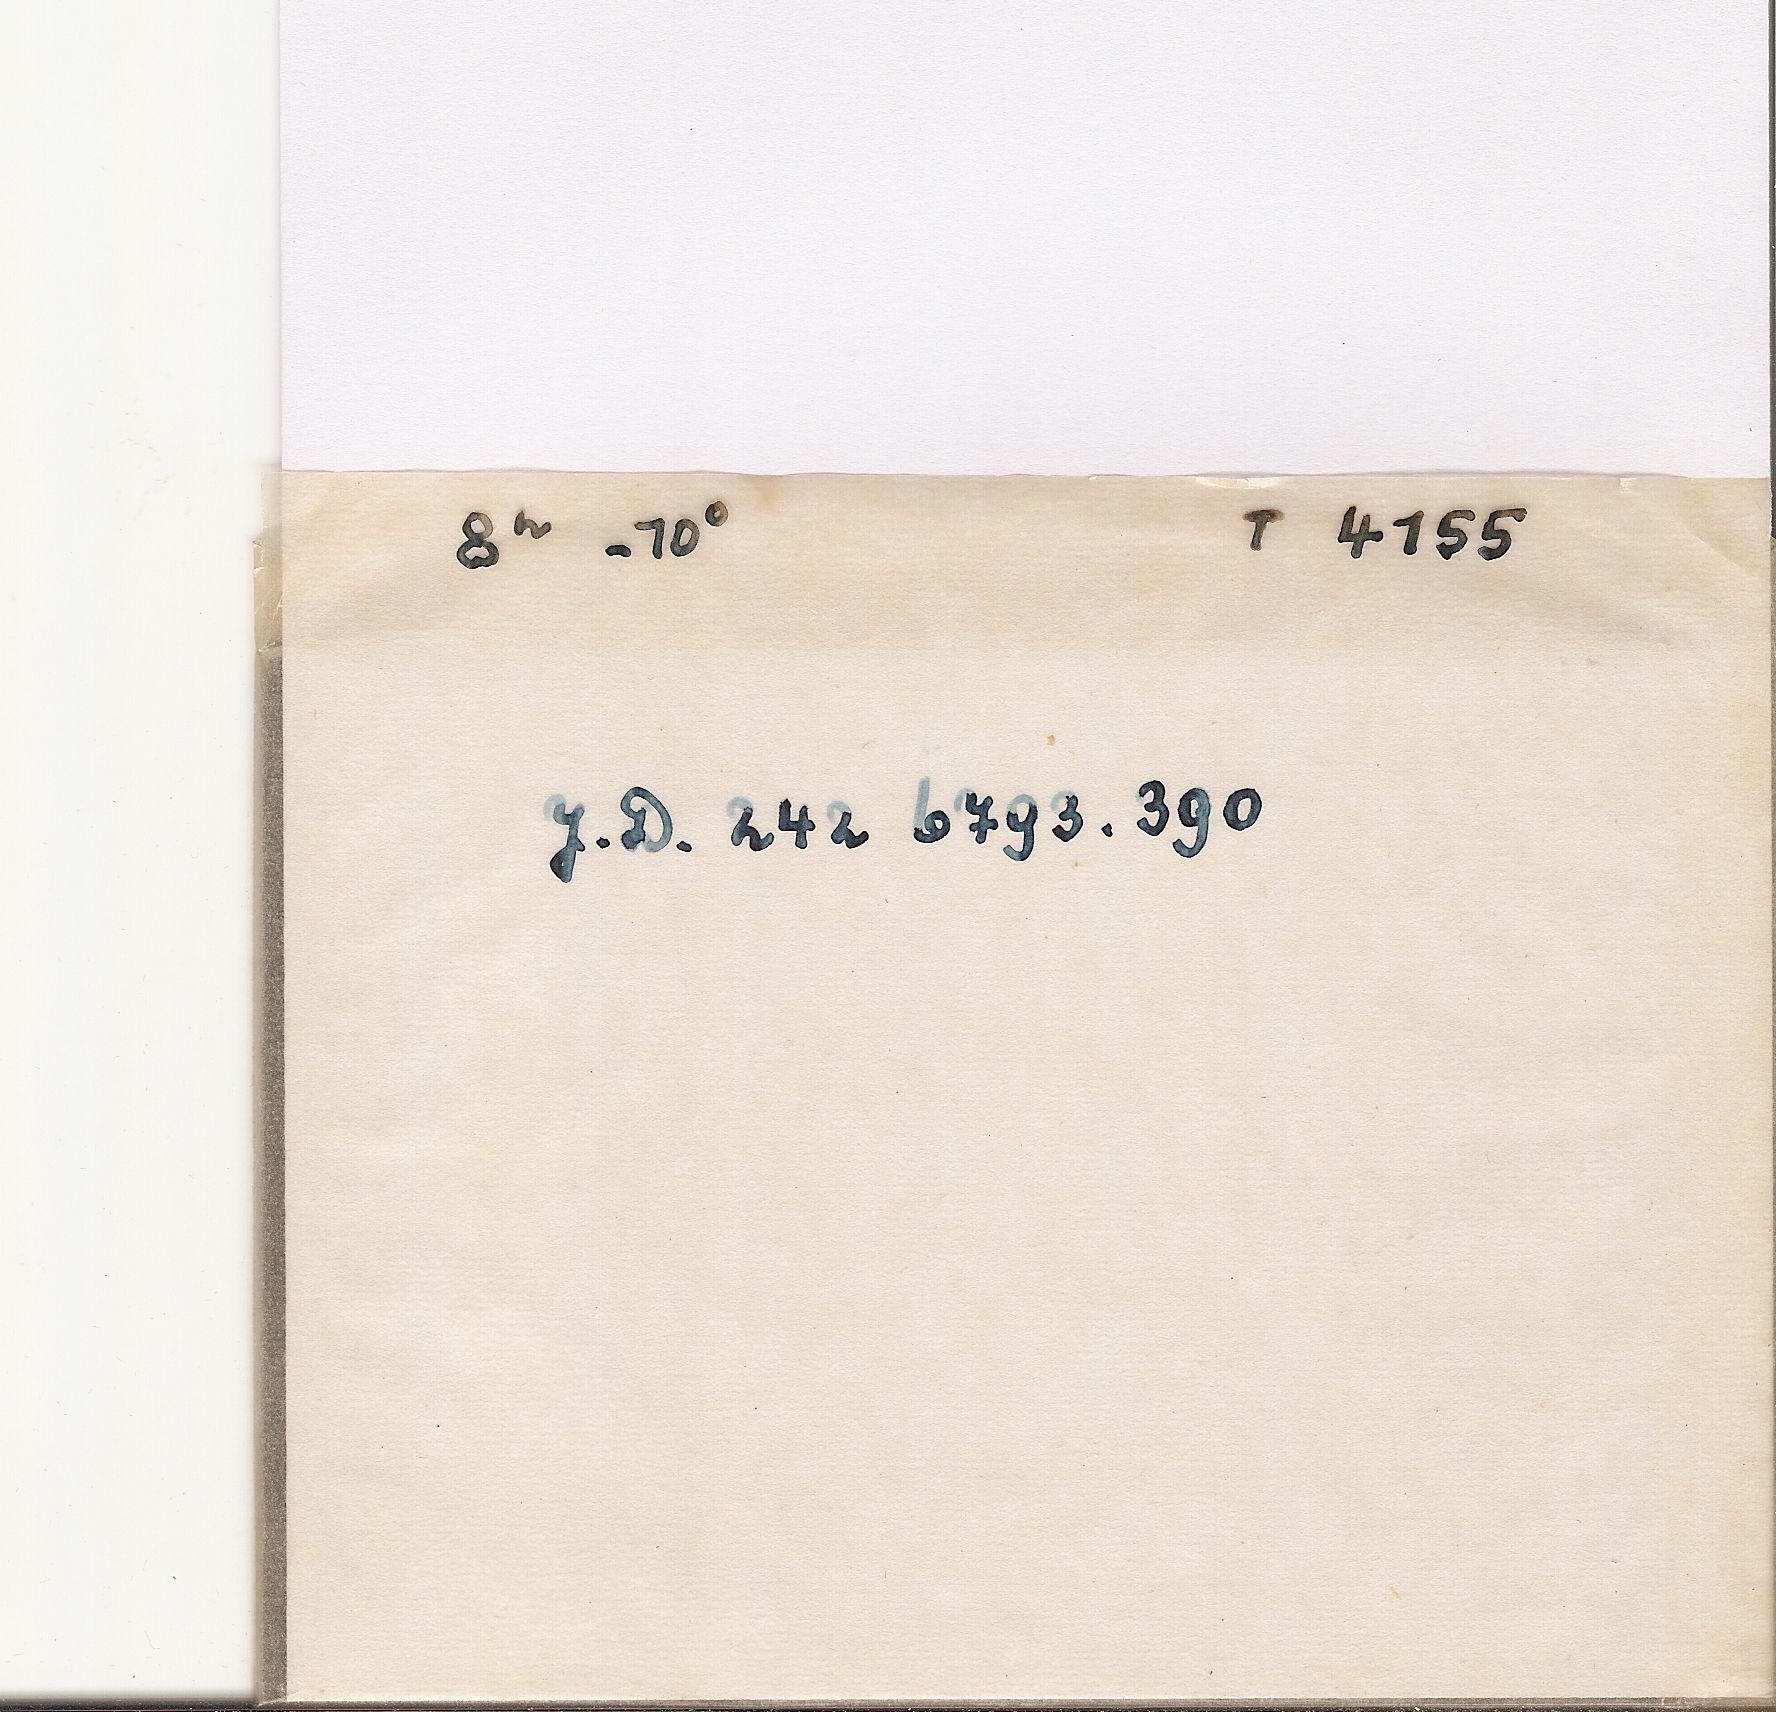 8ʰ -70° T 4155
J.D. 242 6793.390